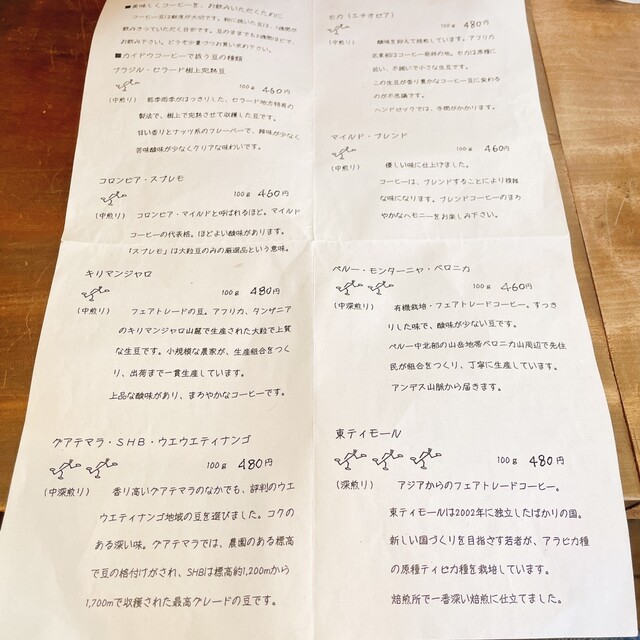 ■美味しくコーヒーを、お飲みいただくために
コーヒー豆は鮮度が大切です。粉に挽いた豆は、1週間が
飲みきっていただく目安です。豆のままでも3週間ほどで、
お飲み下さい。どうぞ少量づつお買い求め下さい。
■カイドウコーヒーで扱う豆の種類
ブラジル・セラード樹上完熟豆
100g 460円
(中煎り) 乾季雨季がはっきりした、セラード地方特有の
製法で、樹上で完熟させて収穫した豆です。
甘い香りとナッツ系のフレーバーで、雑味が少なく
苦味酸味が少なくクリアな味わいです。
コロンビア・スプレモ
100g 460円
(中煎り) コロンビア・マイルドと呼ばれるほど。マイルド
コーヒーの代表格。ほどよい酸味があります。
「スプレモ」は大粒豆のみの厳選品という意味。
キリマンジャロ
100g 480円
(中煎り) フェアトレードの豆。アフリカ、タンザニア
のキリマンジャロ山麓で生産された大粒で上質
な生豆です。小規模な農家が、生産組合をつく
り、出荷まで一貫生産しています。
上品な酸味があり、まろやかなコーヒーです。
グアテマラ・SHB・ウエウエティナンゴ
100g 480円
(中深煎り) 香り高いグアテマラのなかでも、評判のウエ
ウエティナンゴ地域の豆を選びました。コクの
ある深い味。グアテマラでは、農園のある標高
で豆の格付けがされ、SHBは標高約1,200mから
1,700mで収穫された最高グレードの豆です。
モカ(エチオピア)
100g 480円
(中煎り) 酸味を抑えて焙煎しています。アフリカ
北東部はコーヒー発祥の地。モカは原種に
近い、不揃いで小さな生豆です。
この生豆が香り豊かなコーヒー豆に変わる
のが不思議です。
ハンドピックでは、手間がかかります。
マイルド・ブレンド
100g 460円
(中煎り) 優しい味に仕上げました。
コーヒーは、ブレンドすることにより複雑
な味になります。ブレンドコーヒーのまろ
やかなハーモニーをお楽しみ下さい。
ペルー・モンターニャ・ベロニカ
100g 460円
(中深煎り) 有機栽培・フェアトレードコーヒー。すっき
りした味で、酸味が少ない豆です。
ペルー中北部の山岳地帯ベロニカ山周辺で先住
民が組合をつくり、丁寧に生産しています。
アンデス山脈から届きます。
東ティモール
100g 480円
(深煎り) アジアからのフェアトレードコーヒー。
東ティモールは2002年に独立したばかりの国。
新しい国づくりを目指す若者が、アラビカ種
の原種ティピカ種を栽培しています。
焙煎所で一番深い焙煎に仕立てました。